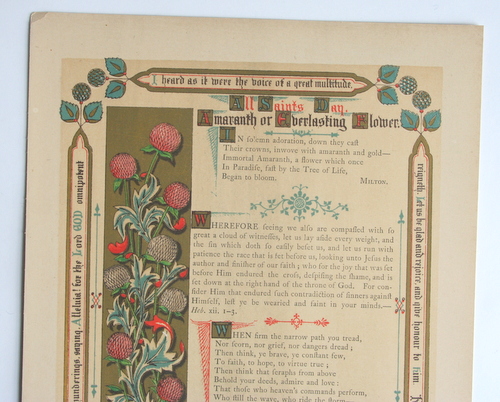 I heard as it were the voice of a great multitude,
All Saints Day.
Amaranth or Everlasting Flower.
IN solemn adoration, down they cast
Their crowns, inwove with amaranth and gold—
Immortal Amaranth, a flower which once
In Paradise, fast by the Tree of Life,
Began to bloom.
MILTON.
WHEREFORE seeing we also are compassed with so
great a cloud of witnesses, let us lay aside every weight, and
the sin which doth so easily beset us, and let us run with
patience the race that is set before us, looking unto Jesus the
author and finisher of our faith; who for the joy that was set
before Him endured the cross, despising the shame, and is
set down at the right hand of the throne of God. For con-
sider Him that endured such contradiction of sinners against
Himself, lest ye be wearied and faint in your minds.—
Heb. xii. 1-3.
WHEN firm the narrow path you tread,
Nor scorn, nor grief, nor dangers dread;
Then think, ye brave, ye constant few,
To faith, to hope, to virtue true;
Then think that seraphs from above
Behold your deeds, admire and love:
That those who heaven's commands perform,
Who still the wave, who ride the storm
reigneth, let us be glad and rejoice, and give honour to him.
thunderings, saying, Alleluia! for the Lord GOD omnipotent